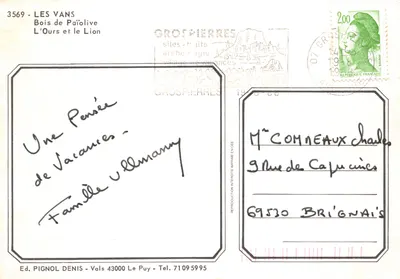 3569 - LES VANS
Bois de Païolive
L'Ours et le Lion
GROSPIERRES
2,00
Une Pensée
de Vacances -
Famille Ullmann
Mr COMMEAUX Charles
9 Rue des Capucines
69530 BRIGNAIS
Ed. PIGNOL DENIS - Vals 43000 Le Puy - Tel. 71095995